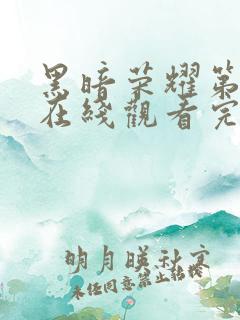 黑暗荣耀第
在线觀看完
明月暎秋寒
未经同意禁止转载